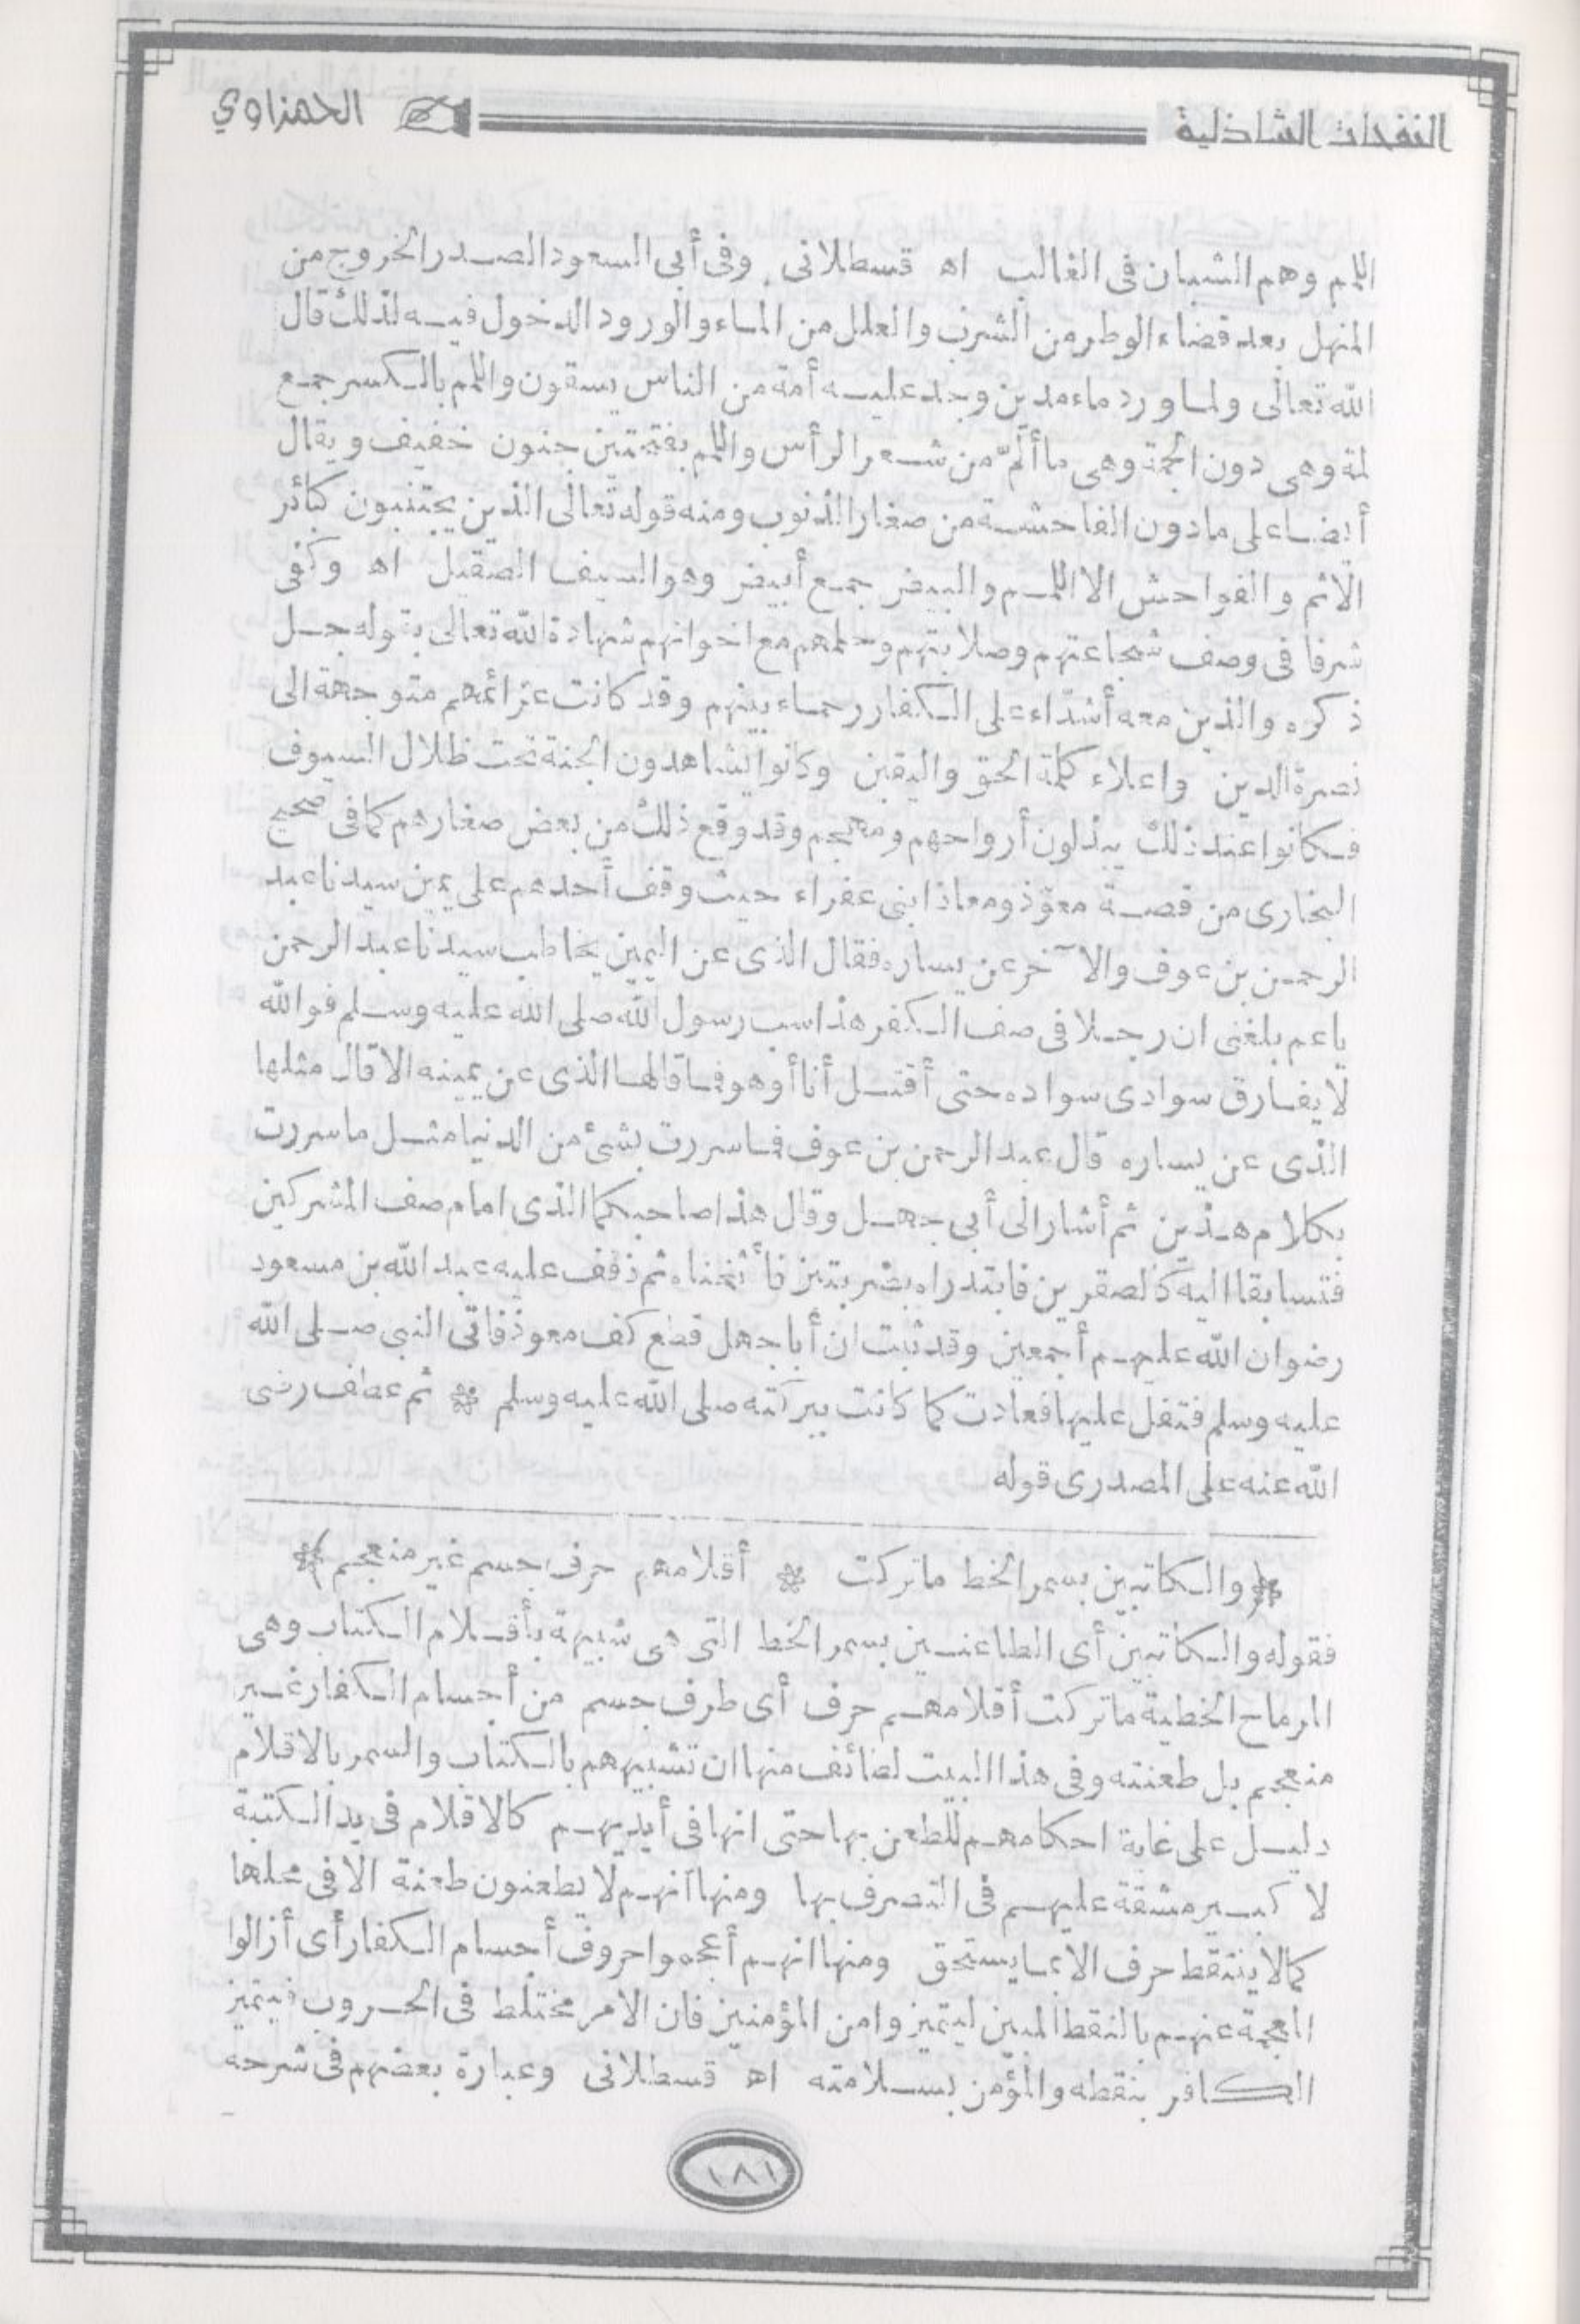 النفحات الشاذلية الحمزاوي
اللمم وهم الشبان فى الغالب اه قسطلانى وفى أبى السعود الصدر الخروج من
المنهل بعد قضاء الوطر من الشرب والعلل من الماء والورود الدخول فيه لذلك قال
الله تعالى ولما ورد ماء مدين وجد عليه أمة من الناس يسقون واللمم بالكسر جمع
لمة وهى دون الجمة وهى ما ألمّ من شعر الرأس واللمم بفتحتين جنون خفيف ويقال
أيضا على مادون الفاحشة من صغار الذنوب ومنه قوله تعالى الذين يجتنبون كبائر
الاثم والفواحش الا اللمم والبيض جمع أبيض وهو السيف الصقيل اه وكفى
شرفا فى وصف شجاعتهم وصلابتهم وحلمهم مع اخوانهم شهادة الله تعالى بقوله جل
ذكره والذين معه أشدّاء على الكفار رحماء بينهم وقد كانت عزائمهم متوجهة الى
نصرة الدين واعلاء كلمة الحق واليقين وكانوا يشاهدون الجنة تحت ظلال السيوف
فكانوا عند ذلك يبذلون أرواحهم ومهجهم وقد وقع ذلك من بعض صغارهم كما فى صحيح
البخارى من قصة معوّذ ومعاذ ابنى عفراء حيث وقف أحدهم على يمين سيدنا عبد
الرحمن بن عوف والآخر عن يساره فقال الذى عن اليمين يخاطب سيدنا عبد الرحمن
ياعم بلغنى ان رجلا فى صف الكفر هذا سب رسول الله صلى الله عليه وسلم فوالله
لا يفارق سوادى سواده حتى أقتل أنا أو هو فما قالها الذى عن يمينه الا قال مثلها
الذى عن يساره قال عبد الرحمن بن عوف فما سررت بشئ من الدنيا مثل ما سررت
بكلام هذين ثم أشار الى أبى جهل وقال هذا صاحبكما الذى امام صف المشركين
فتسابقا اليه كالصقرين فابتدراه بضربتين فأثخناه ثم ذفف عليه عبد الله بن مسعود
رضوان الله عليهم أجمعين وقد ثبت ان أبا جهل قطع كف معوذ فاتى النبى صلى الله
عليه وسلم فتفل عليها فعادت كما كانت ببركته صلى الله عليه وسلم * ثم عطف رضى
الله عنه على المصدرى قوله
*(والكاتبين بسمر الخط ما تركت * أقلامهم حرف جسم غير منعجم)*
فقوله والكاتبين أى الطاعنين بسمر الخط التى هى شبيهة بأقلام الكتاب وهى
الرماح الخطية ما تركت أقلامهم حرف أى طرف جسم من أجسام الكفار غير
منعجم بل طعنته وفى هذا البيت لطائف منها ان تشبيههم بالكتاب والسمر بالاقلام
دليل على غاية احكامهم للطعن بها حتى انها فى أيديهم كالاقلام فى يد الكتبة
لا كبير مشقة عليهم فى التصرف بها ومنها أنهم لا يطعنون طعنة الا فى محلها
كما لا ينتقط حرف الا بما يستحق ومنها انهم أعجموا حروف أجسام الكفار أى أزالوا
العجمة عنهم بالنقط المبين ليتميزوا من المؤمنين فان الامر مختلط فى الحروب فيتميز
الكافر بنقطه والمؤمن بسلامته اه قسطلانى وعبارة بعضهم فى شرحه
١٨١